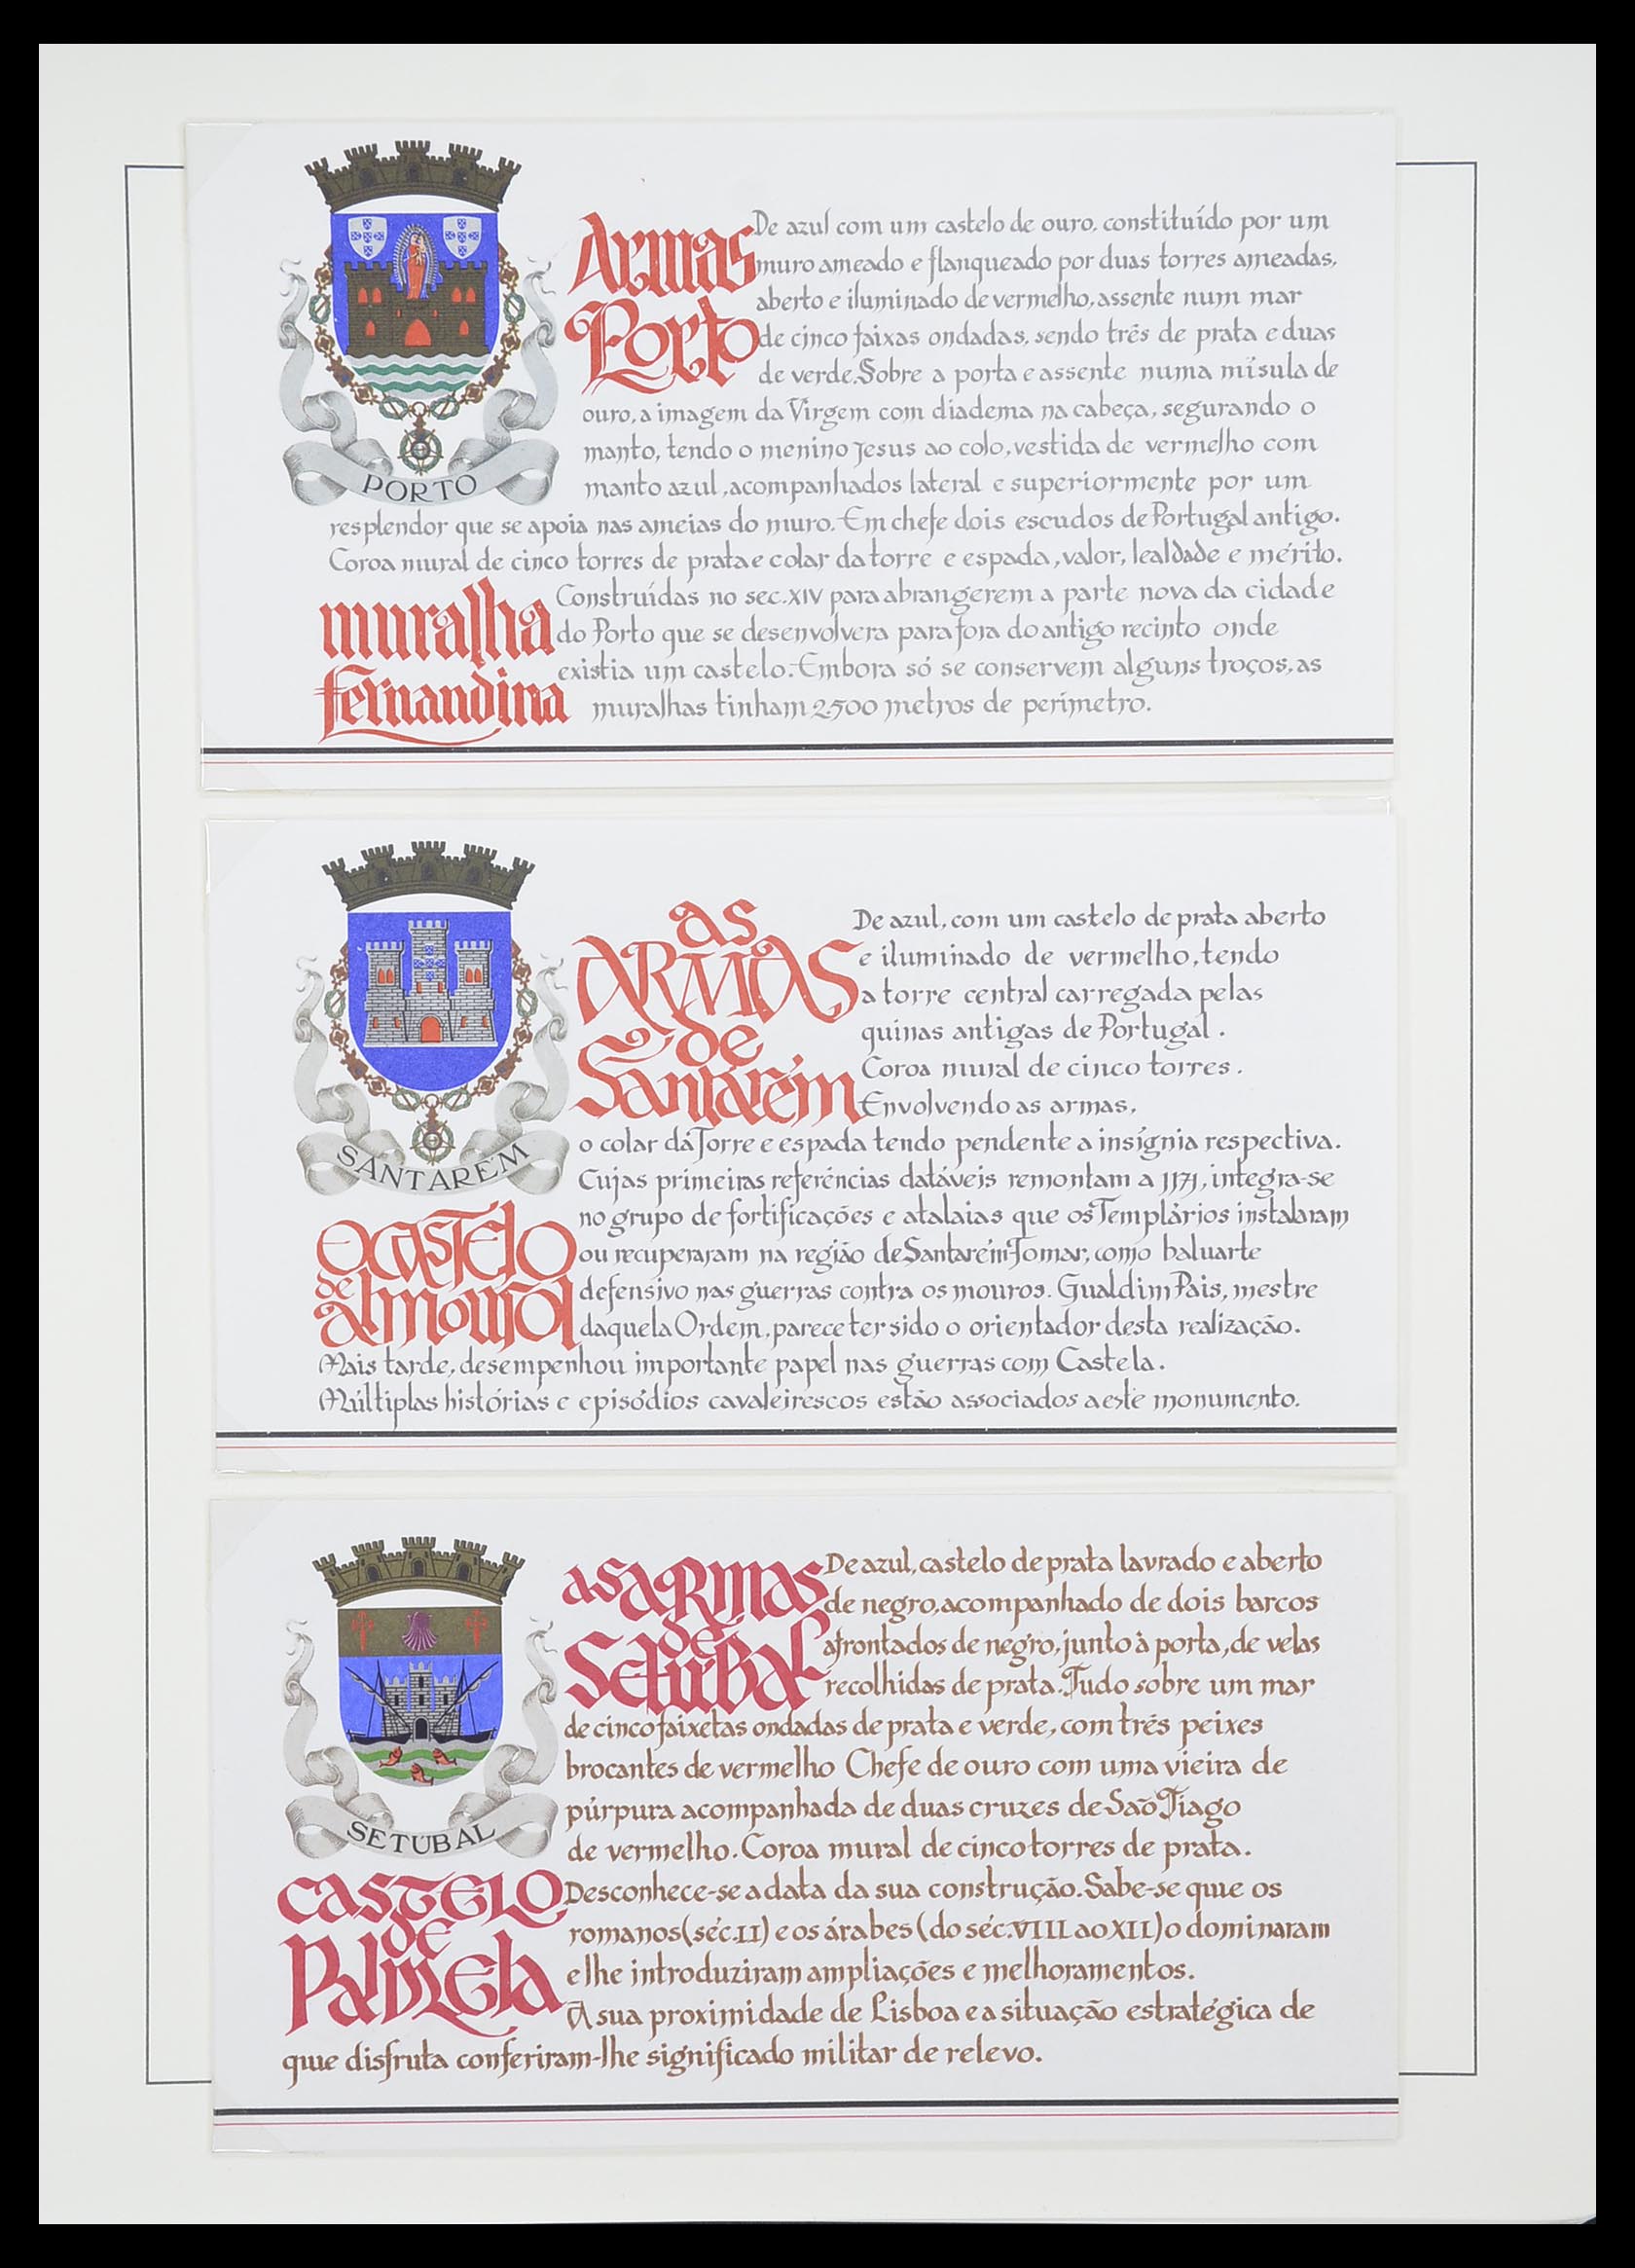 PORTO
Armas
Porto
De azul com um castelo de ouro, constituído por um
muro ameado e flanqueado por duas torres ameadas,
aberto e iluminado de vermelho, assente num mar
de cinco faixas ondadas, sendo três de prata e duas
de verde. Sobre a porta e assente numa mísula de
ouro, a imagem da Virgem com diadema na cabeça, segurando o
manto, tendo o menino Jesus ao colo, vestida de vermelho com
manto azul, acompanhados lateral e superiormente por um
resplendor que se apoia nas ameias do muro. Em chefe dois escudos de Portugal antigo.
Coroa mural de cinco torres de prata e colar da torre e espada, valor, lealdade e mérito.
muralha
fernandina
Construídas no sec. XIV para abrangerem a parte nova da cidade
do Porto que se desenvolvera para fora do antigo recinto onde
existia um castelo. Embora só se conservem alguns troços, as
muralhas tinham 2500 metros de perímetro.
SANTARÉM
as
ARMAS
de
Santarém
De azul, com um castelo de prata aberto
e iluminado de vermelho, tendo
a torre central carregada pelas
quinas antigas de Portugal.
Coroa mural de cinco torres.
Envolvendo as armas,
o colar dá Torre e espada tendo pendente a insígnia respectiva.
O CASTELO
de
almourol
Cujas primeiras referências datáveis remontam a 1171, integra-se
no grupo de fortificações e atalaias que os Templários instalaram
ou recuperaram na região de Santarém-Tomar, como baluarte
defensivo nas guerras contra os mouros. Gualdim Pais, mestre
daquela Ordem, parece ter sido o orientador desta realização.
Mais tarde, desempenhou importante papel nas guerras com Castela.
Múltiplas histórias e episódios cavaleirescos estão associados a este monumento.
SETÚBAL
as ARMAS
DE
SETÚBAL
De azul, castelo de prata lavrado e aberto
de negro, acompanhado de dois barcos
afrontados de negro, junto à porta, de velas
recolhidas de prata. Tudo sobre um mar
de cinco faixetas ondadas de prata e verde, com três peixes
brocantes de vermelho Chefe de ouro com uma vieira de
púrpura acompanhada de duas cruzes de São Tiago
de vermelho. Coroa mural de cinco torres de prata.
CASTELO
DE
PALMELA
Desconhece-se a data da sua construção. Sabe-se que os
romanos (séc. II) e os árabes (do séc. VIII ao XII) o dominaram
e lhe introduziram ampliações e melhoramentos.
A sua proximidade de Lisboa e a situação estratégica de
que disfruta conferiram-lhe significado militar de relevo.